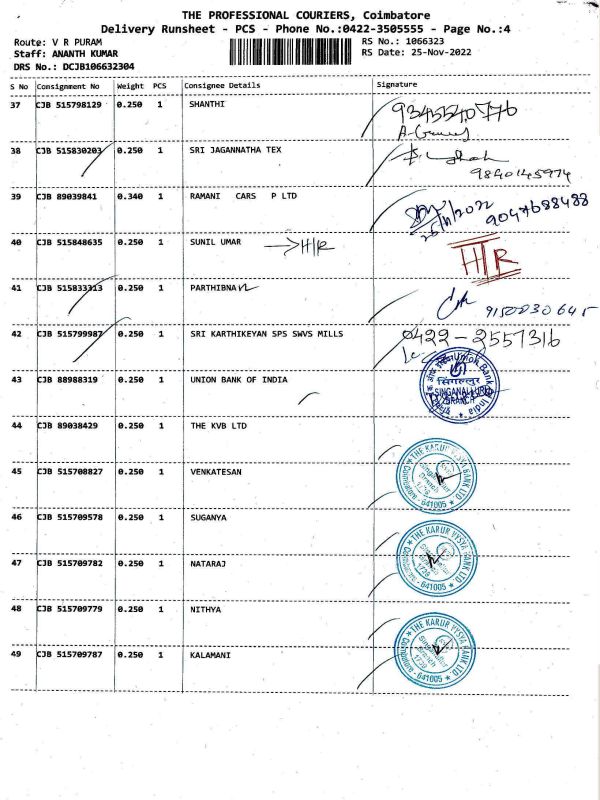 THE PROFESSIONAL COURIERS, Coimbatore
Delivery Runsheet - PCS - Phone No.:0422-3505555 - Page No.:4
Route: V R PURAM
RS No.: 1066323
Staff: ANANTH KUMAR
RS Date: 25-Nov-2022
DRS No.: DCJB106632304
S No Consignment No Weight PCS Consignee Details Signature
37 CJB 515798129 0.250 1 SHANTHI 9345540776
38 CJB 515830203 0.250 1 SRI JAGANNATHA TEX
9840145974
39 CJB 89039841 0.340 1 RAMANI CARS P LTD 25/11/2022 9047688488
40 CJB 515848635 0.250 1 SUNIL UMAR → H/R H/R
41 CJB 515833313 0.250 1 PARTHIBNAN
9150830645
42 CJB 515799987 0.250 1 SRI KARTHIKEYAN SPS SWVS MILLS 0422-2557316
43 CJB 88988319 0.250 1 UNION BANK OF INDIA
Union Bank of India
सिंगानल्लुर
SINGANALLUR
BRANCH
44 CJB 89038429 0.250 1 THE KVB LTD
45 CJB 515708827 0.250 1 VENKATESAN
THE KARUR VYSYA BANK LTD
Singanallur
Branch
1729
Coimbatore - 641005
46 CJB 515709578 0.250 1 SUGANYA
47 CJB 515709782 0.250 1 NATARAJ
THE KARUR VYSYA BANK LTD
Singanallur
Branch
1729
Coimbatore - 641005
48 CJB 515709779 0.250 1 NITHYA
49 CJB 515709787 0.250 1 KALAMANI
THE KARUR VYSYA BANK LTD
Singanallur
Branch
1729
Coimbatore - 641005